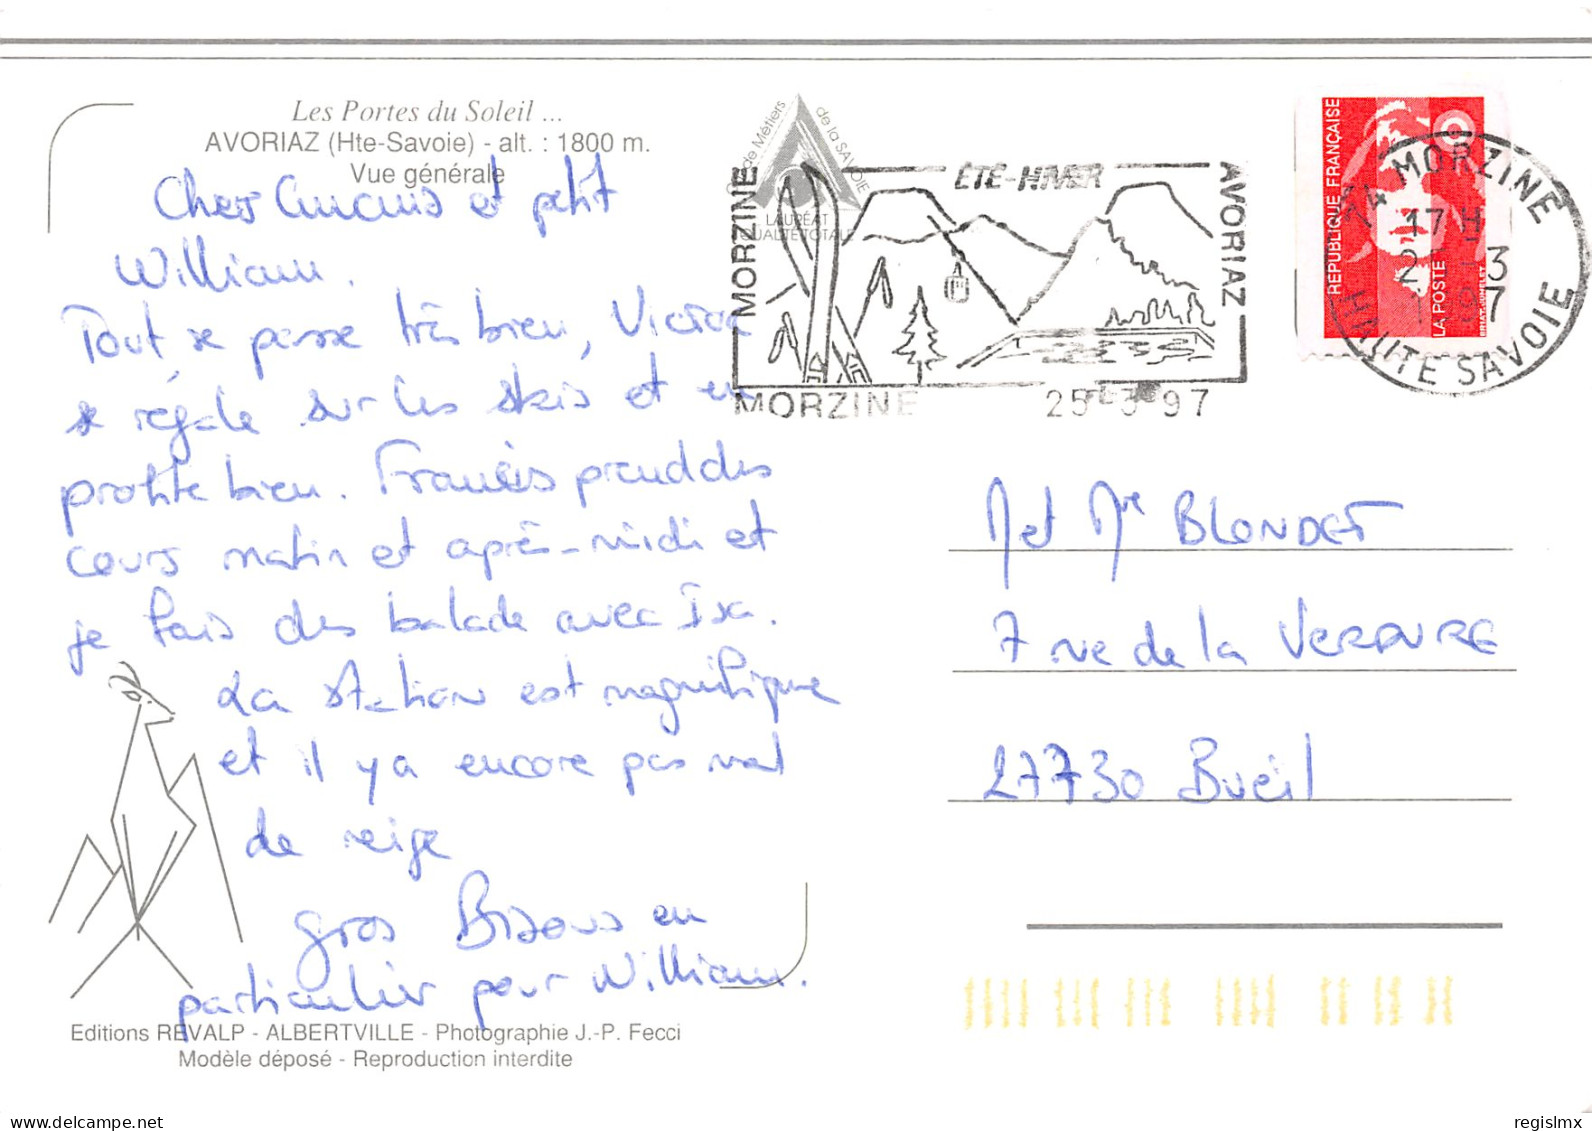 Les Portes du Soleil ...
AVORIAZ (Hte-Savoie) - alt. : 1800 m.
Vue générale
Cher et petit
William.
Tout se passe très bien, Victor
se régale sur les skis et en
profite bien. Francis prend des
cours matin et après-midi et
je fais des balade avec Isa.
La station est magnifique
et il y a encore pas mal
de neige
gros Bisous en
particulier pour William.
Editions REVALP - ALBERTVILLE - Photographie J.-P. Fecci
Modèle déposé - Reproduction interdite
de Métiers de la SAVOIE
LAURÉAT
QUALITÉ TOTALE
ÉTÉ-HIVER
MORZINE
AVORIAZ
MORZINE 25-3-97
RÉPUBLIQUE FRANÇAISE
LA POSTE
74 MORZINE
17H
HAUTE SAVOIE
M et Me BLONDET
7 rue de la VERDURE
27730 Bueil
regislmx